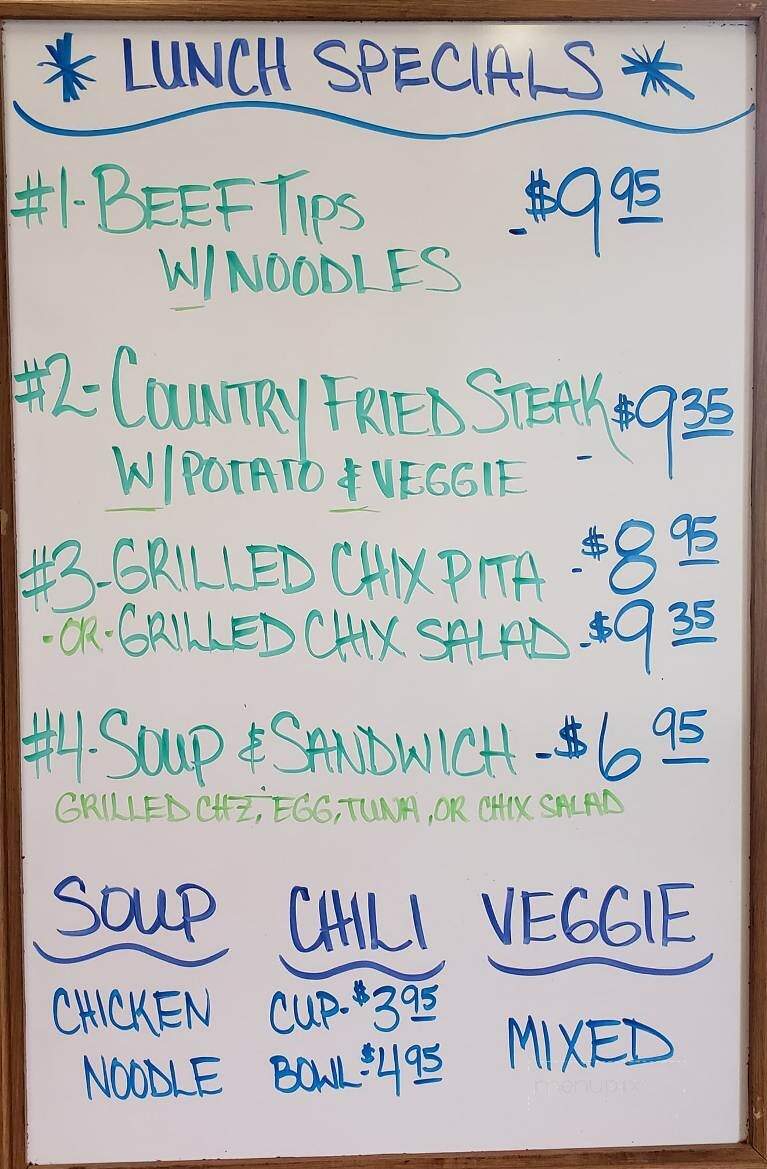 * LUNCH SPECIALS *
#1-BEEF TIPS -$9.95
W/NOODLES
#2-COUNTRY FRIED STEAK -$9.35
W/POTATO & VEGGIE
#3-GRILLED CHIX PITA -$8.95
-OR-GRILLED CHIX SALAD -$9.35
#4-SOUP & SANDWICH -$6.95
GRILLED CHZ, EGG, TUNA, OR CHIX SALAD
SOUP CHILI VEGGIE
CHICKEN CUP-$3.95
NOODLE BOWL-$4.95 MIXED
menupix